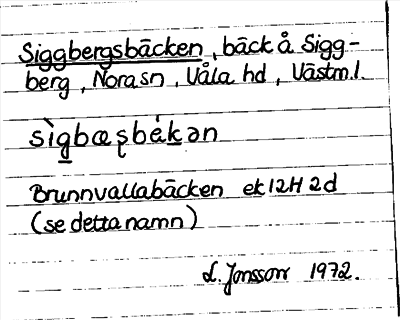 Siggbergsbäcken, bäck å Sigg-
berg, Nora sn, Våla hd, Västm.l.
sìg̲bæʂbék̲ən
Brunnvallabäcken ek 12H 2d
(se detta namn)
L. Jonsson 1972.